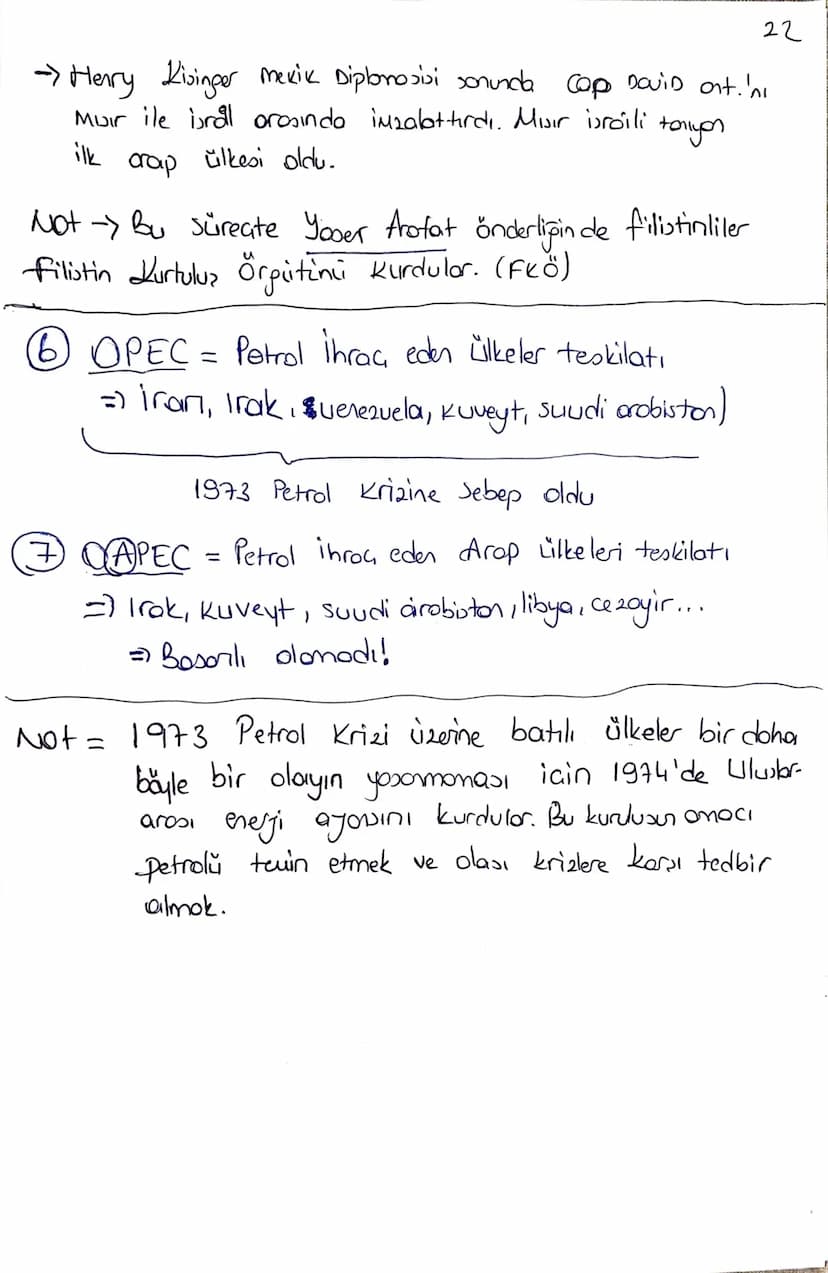 22
→ Henry Kisinger mekik Diplomasisi sonunda Cap David ant.'nı
Mısır ile israil arasında imzalattırdı. Mısır israili tanıyan
ilk arap ülkesi oldu.
Not → Bu süreçte Yaser Arafat önderliğinde filistinliler
filistin Kurtuluş Örgütünü kurdular. (FKÖ)
6 OPEC = Petrol İhraç eden ülkeler teskilatı
⇒ İran, Irak, venezuela, kuveyt, suudi arabistan)
1973 Petrol krizine sebep oldu
7 OAPEC = Petrol ihraç eden Arap ülkeleri teskilatı
⇒ Irak, kuveyt, suudi arabistan, libya, cezayir...
⇒ Basarılı olamadı!
Not = 1973 Petrol krizi üzerine batılı ülkeler bir daha
böyle bir olayın yaşanmaması icin 1974'de Uluslar-
arası enerji ajansını kurdular. Bu kurulusun amacı
petrolü temin etmek ve olası krizlere karşı tedbir
almak.